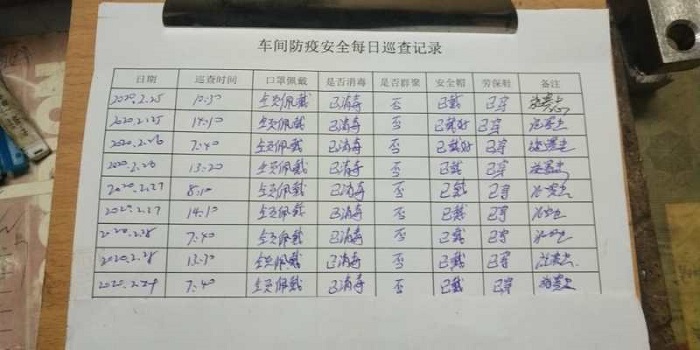 车间防疫安全每日巡查记录
日期 巡查时间 口罩佩戴 是否消毒 是否群聚 安全帽 劳保鞋 备注
2020.2.25 10:30 全员佩戴 已消毒 否 已戴 已穿
2020.2.25 14:10 全员佩戴 已消毒 否 已戴好 已穿
2020.2.26 7:40 全员佩戴 已消毒 否 已戴好 已穿
2020.2.26 13:20 全员佩戴 已消毒 否 已戴 已穿
2020.2.27 8:10 全员佩戴 已消毒 否 已戴 已穿
2020.2.27 14:10 全员佩戴 已消毒 否 已戴 已穿
2020.2.28 7:40 全员佩戴 已消毒 否 已戴 已穿
2020.2.28 13:30 全员佩戴 已消毒 否 已戴 已穿
2020.2.29 7:40 全员佩戴 已消毒 否 已戴 已穿